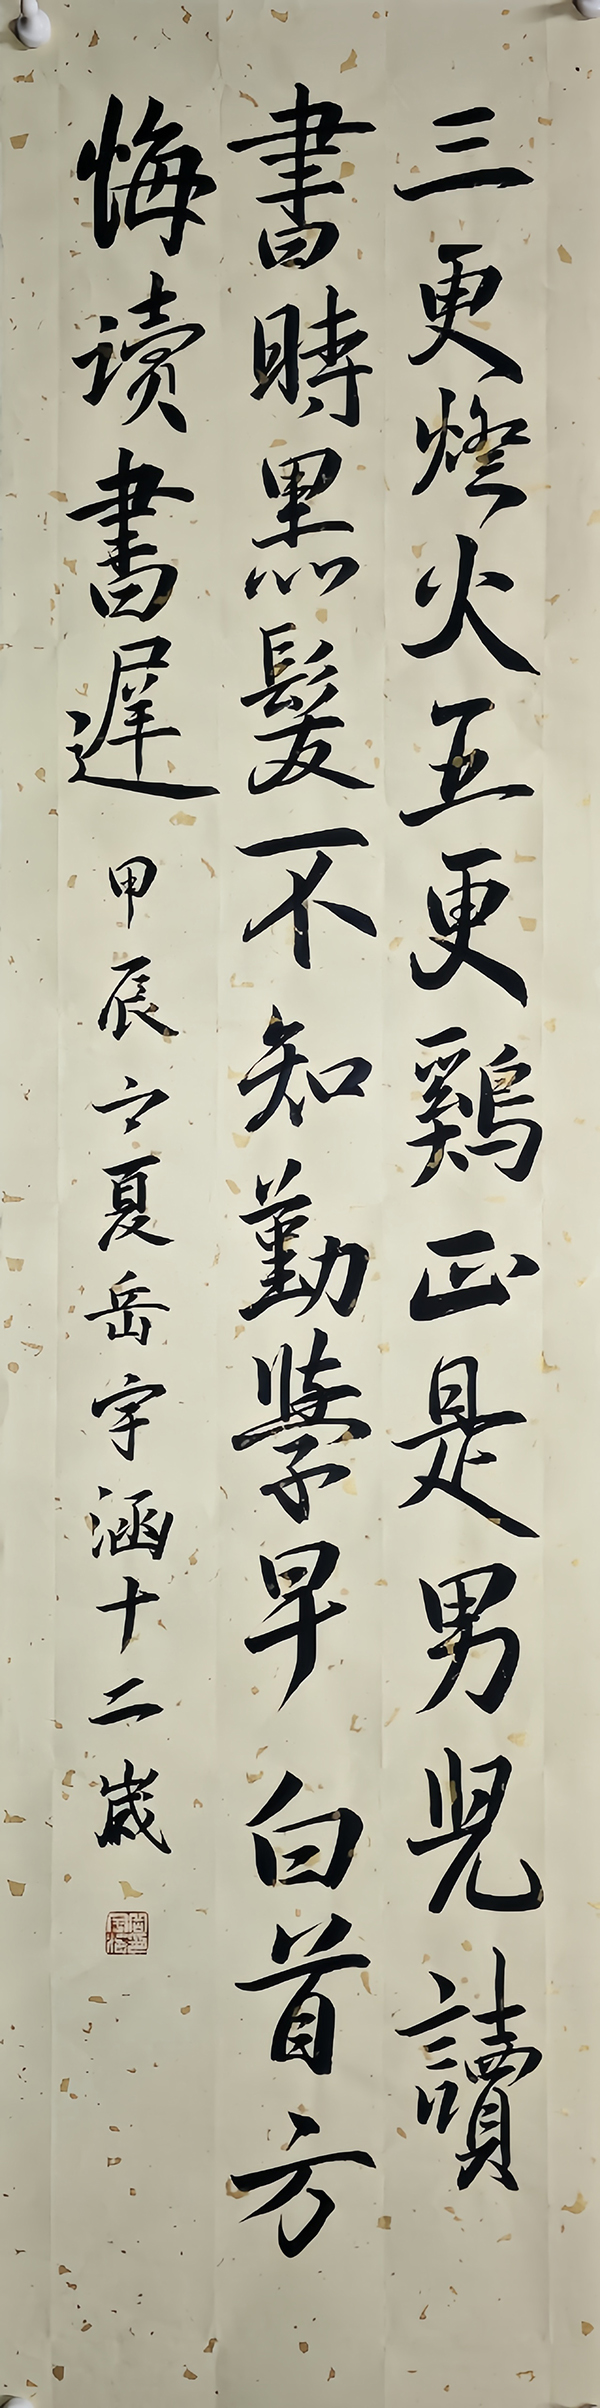 三更燈火五更鷄正是男児讀
書時黒髮不知勤學早白首方
悔读書遲
甲辰之夏岳宇涵十二歲